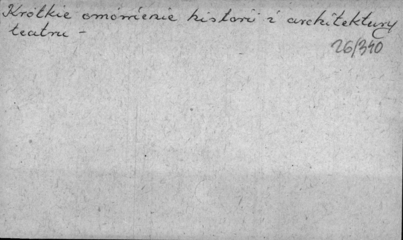 Krótkie omówienie historii i architektury
teatru -
26/340